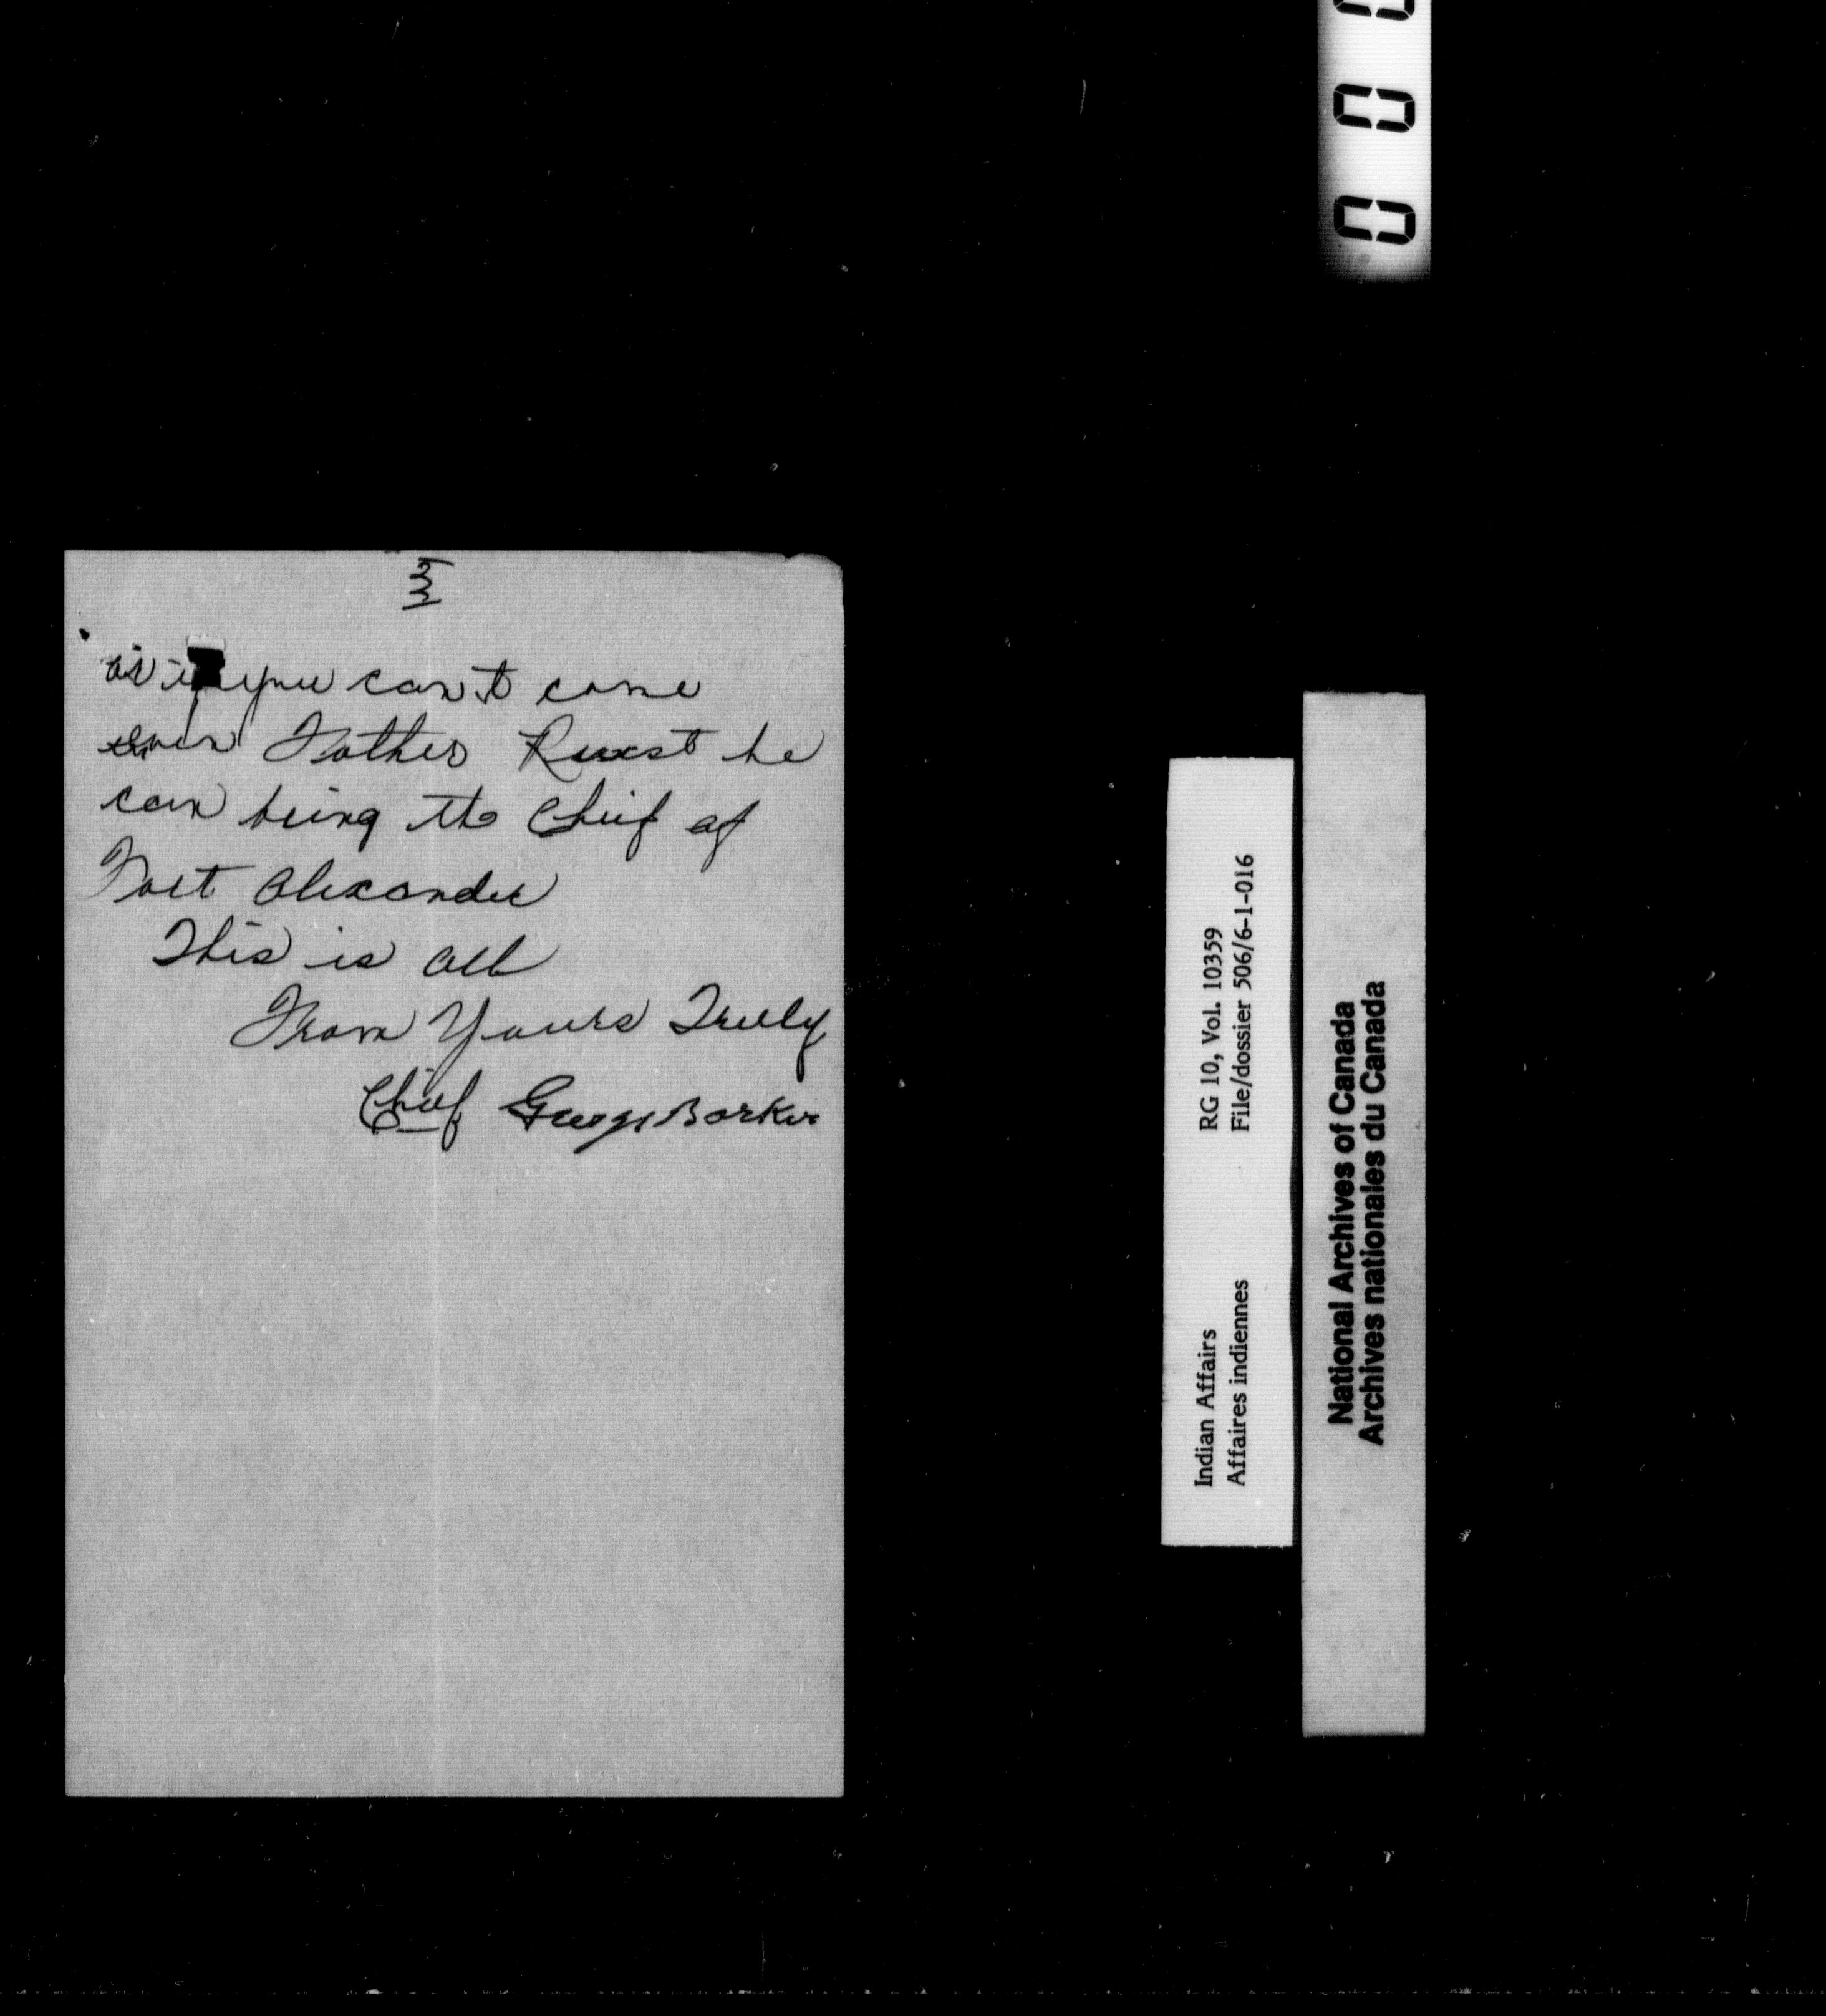 3
or if you can't come
even Father Ruest he
can bring the Chief of
Fort Alexander
This is all
From Yours Truly
Chief George Barker
Indian Affairs RG 10, Vol. 10359
Affaires indiennes File/dossier 506/6-1-016
National Archives of Canada
Archives nationales du Canada
0 0